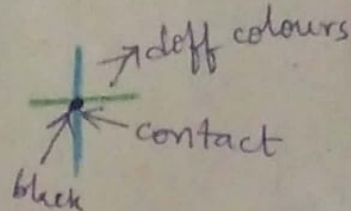 deff colours
contact
black